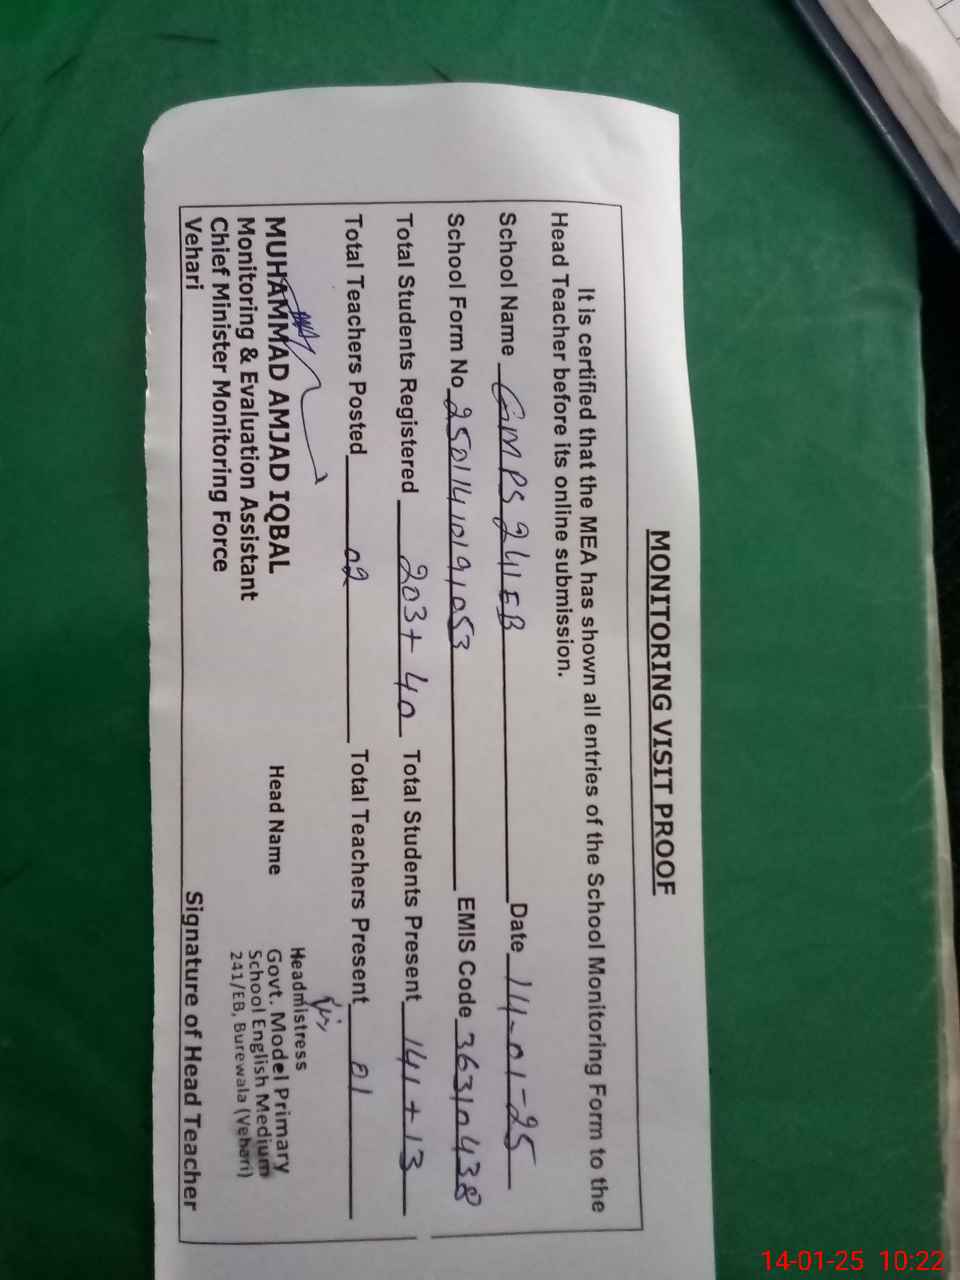 MONITORING VISIT PROOF
It is certified that the MEA has shown all entries of the School Monitoring Form to the
Head Teacher before its online submission.
School Name GMPS 241 EB Date 14-01-25
School Form No 25011410191053 EMIS Code 36310438
Total Students Registered 203+40 Total Students Present 141+13
Total Teachers Posted 02 Total Teachers Present 01
MUHAMMAD AMJAD IQBAL
Monitoring & Evaluation Assistant
Chief Minister Monitoring Force
Vehari
Head Name
Headmistress
Govt. Model Primary
School English Medium
241/EB, Burewala (Vehari)
Signature of Head Teacher
14-01-25 10:22